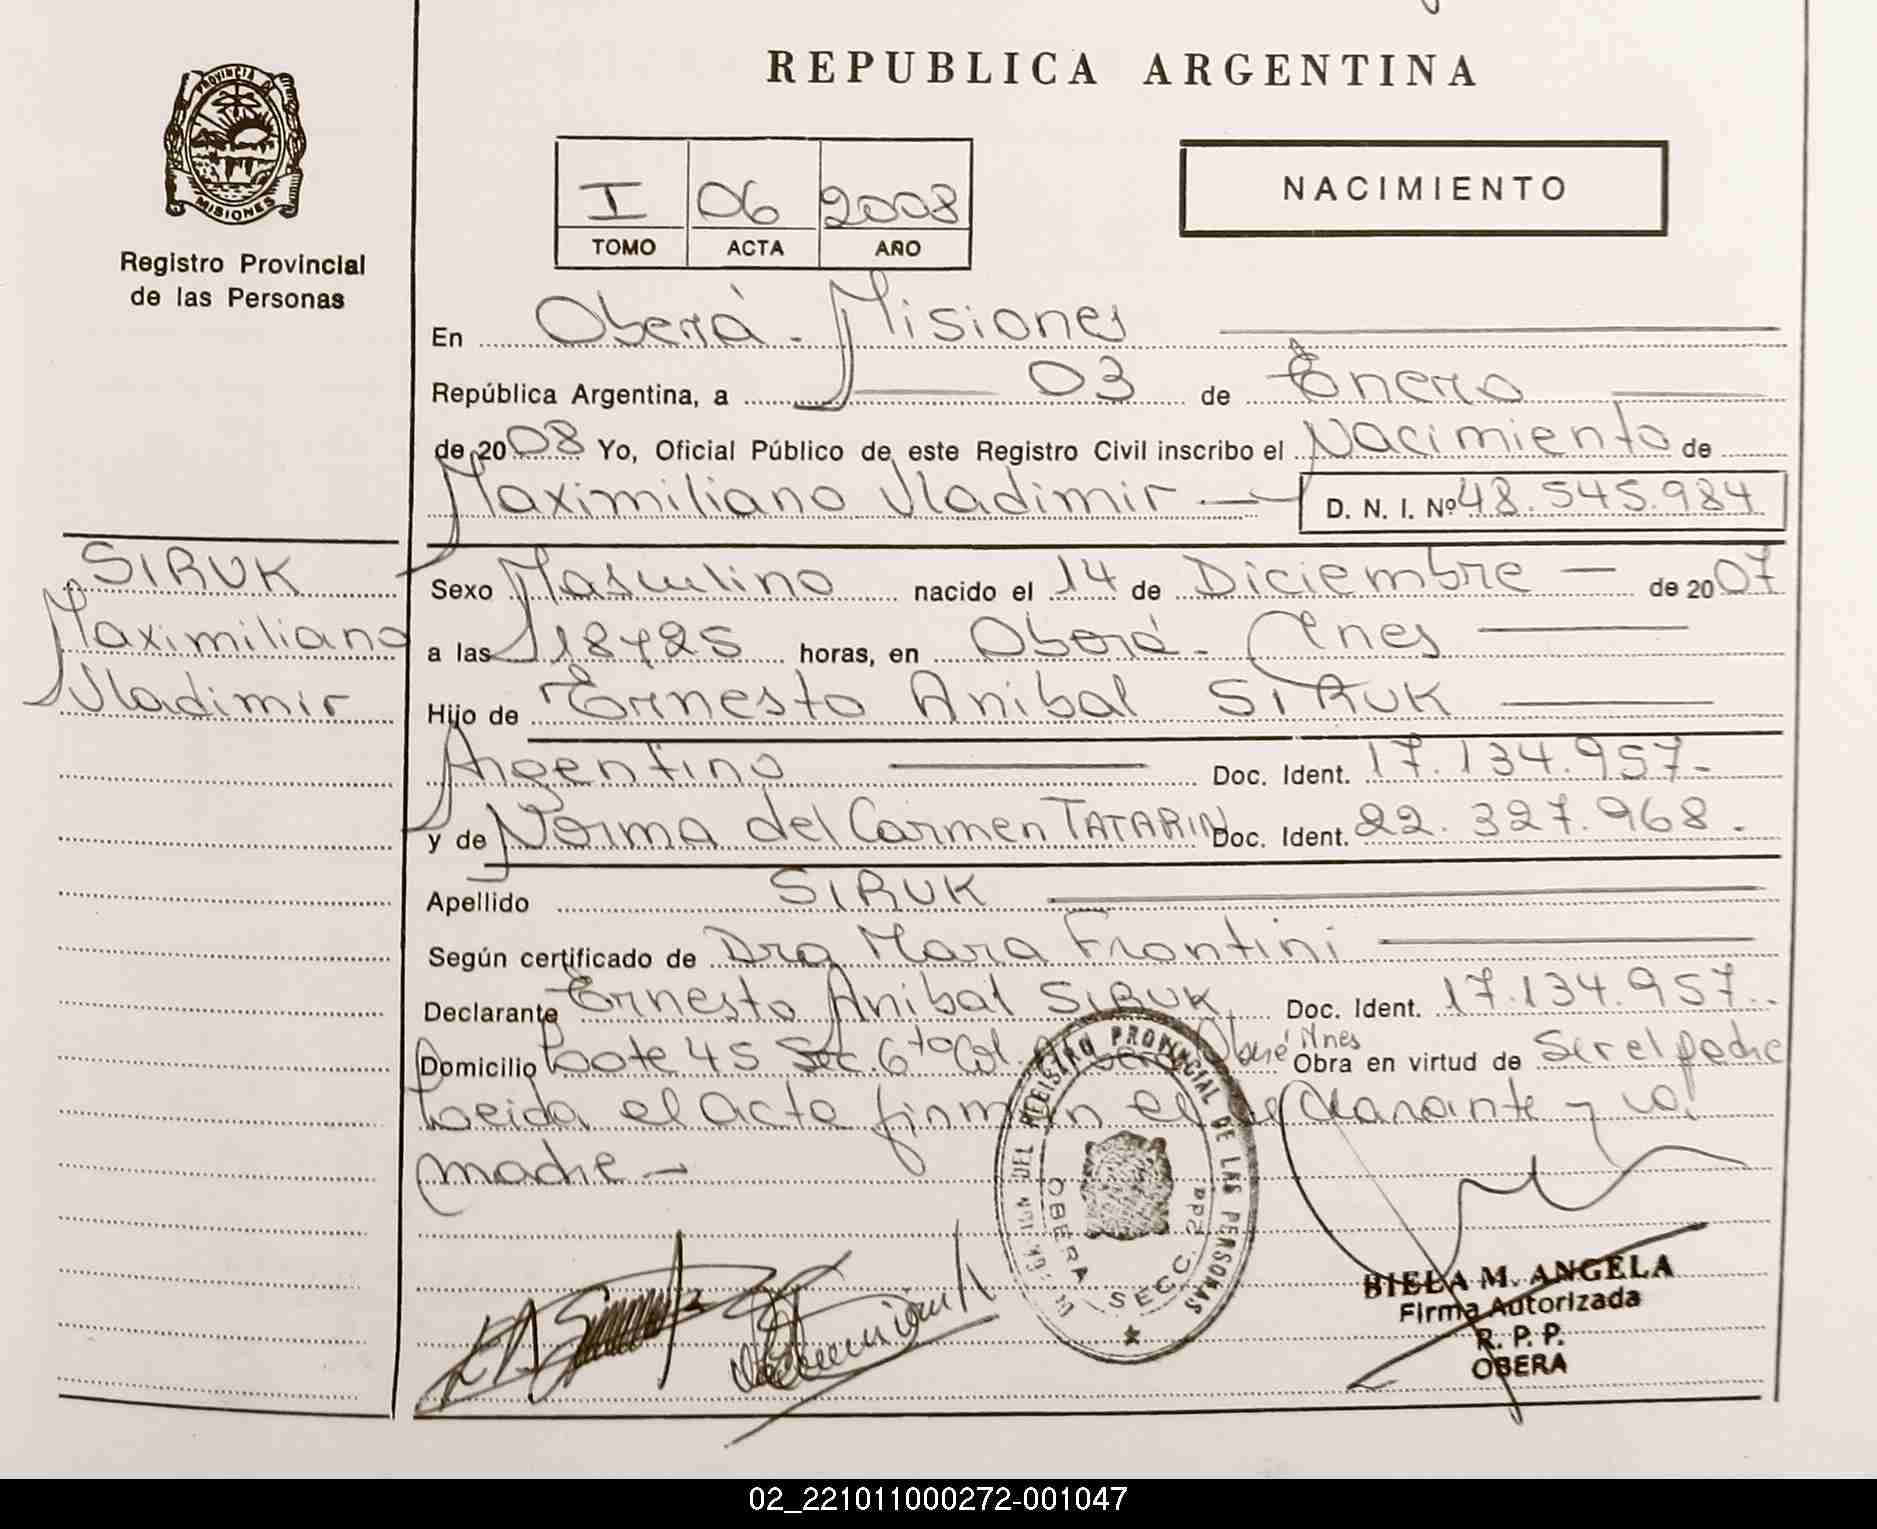 REPUBLICA ARGENTINA
PROVINCIA D
MISIONES
Registro Provincial
de las Personas
I 06 2008
TOMO ACTA AÑO
NACIMIENTO
En Oberá - Misiones
República Argentina, a 03 de Enero
de 2008 Yo, Oficial Público de este Registro Civil inscribo el Nacimiento de
Maximiliano Vladimir D. N. I. Nº 48.545.984
SIRUK
Maximiliano
Vladimir
Sexo Masculino nacido el 14 de Diciembre - de 2007
a las 18y25 horas, en Oberá - Mnes
Hijo de Ernesto Anibal SIRUK
Argentino Doc. Ident. 17.134.957-
y de Norma del Carmen TATARIN Doc. Ident. 22.327.968.
Apellido SIRUK
Según certificado de Dra Mara Frontini
Declarante Ernesto Anibal SIRUK Doc. Ident. 17.134.957..
Domicilio Lote 45 Sec. 6ta Col. Mnes Obra en virtud de Ser el padre
Leida el acta firman el declarante y la
madre -
DEL REGISTRO PROVINCIAL DE LAS PERSONAS
OBERA SECC. 2da
BIELA M. ANGELA
Firma Autorizada
R. P. P.
OBERA
02_221011000272-001047